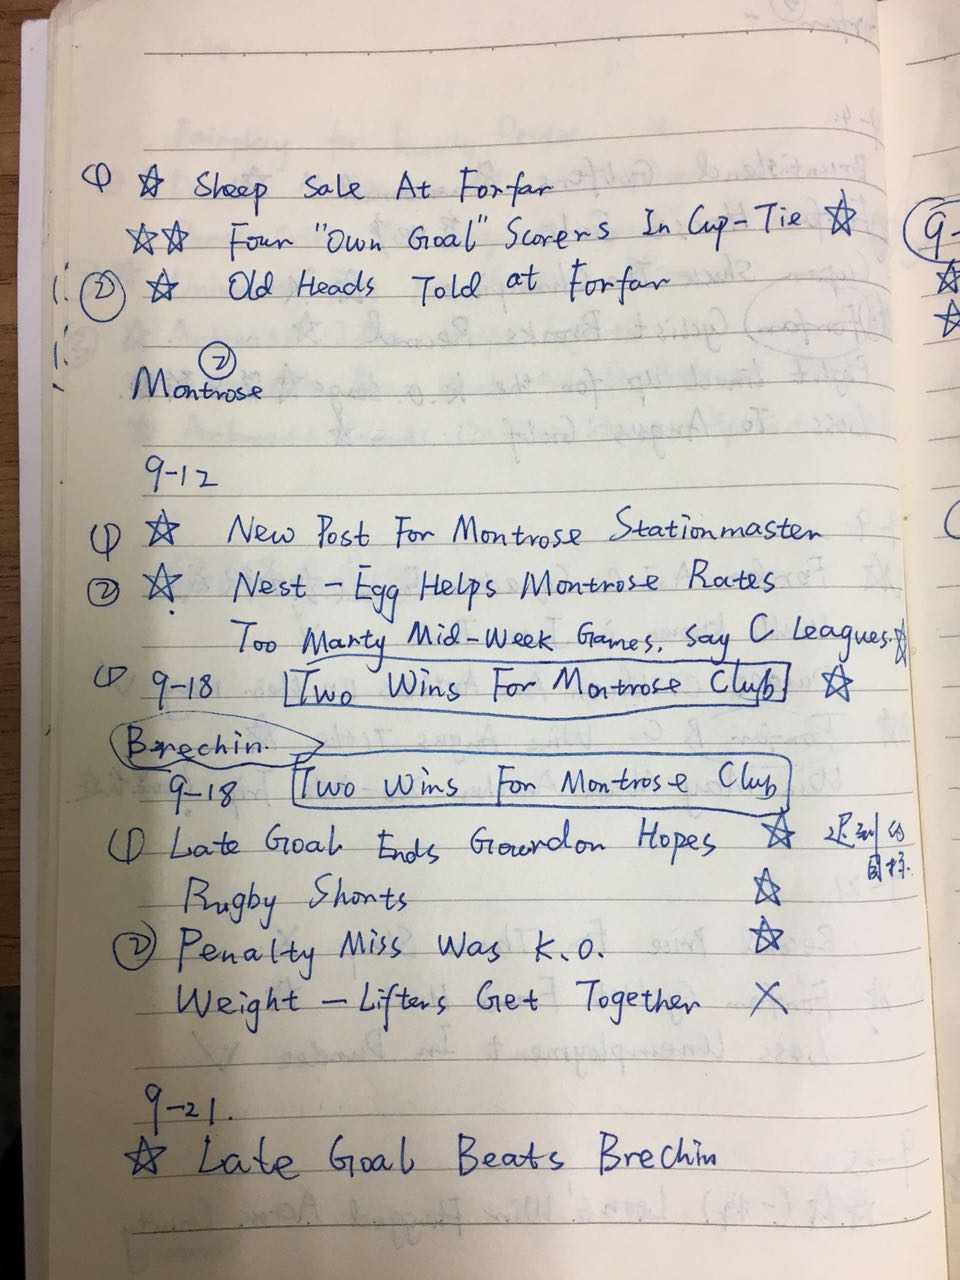 ① ☆ Sheep Sale At Forfar
☆☆ Four "Own Goal" Scorers In Cup-Tie ☆
② ☆ Old Heads Told at Forfar
②
Montrose
9-12
① ☆ New Post For Montrose Stationmaster
② ☆ Nest-Egg Helps Montrose Rates
Too Marty Mid-Week Games, Say C Leagues. ☆
① 9-18 Two Wins For Montrose Club ☆
Brechin.
9-18 Two Wins For Montrose Club
① Late Goal Ends Gourdon Hopes ☆ 迟到的
目标.
Rugby Shorts ☆
② Penalty Miss Was K.O. ☆
Weight-Lifters Get Together ×
9-21.
☆ Late Goal Beats Brechin